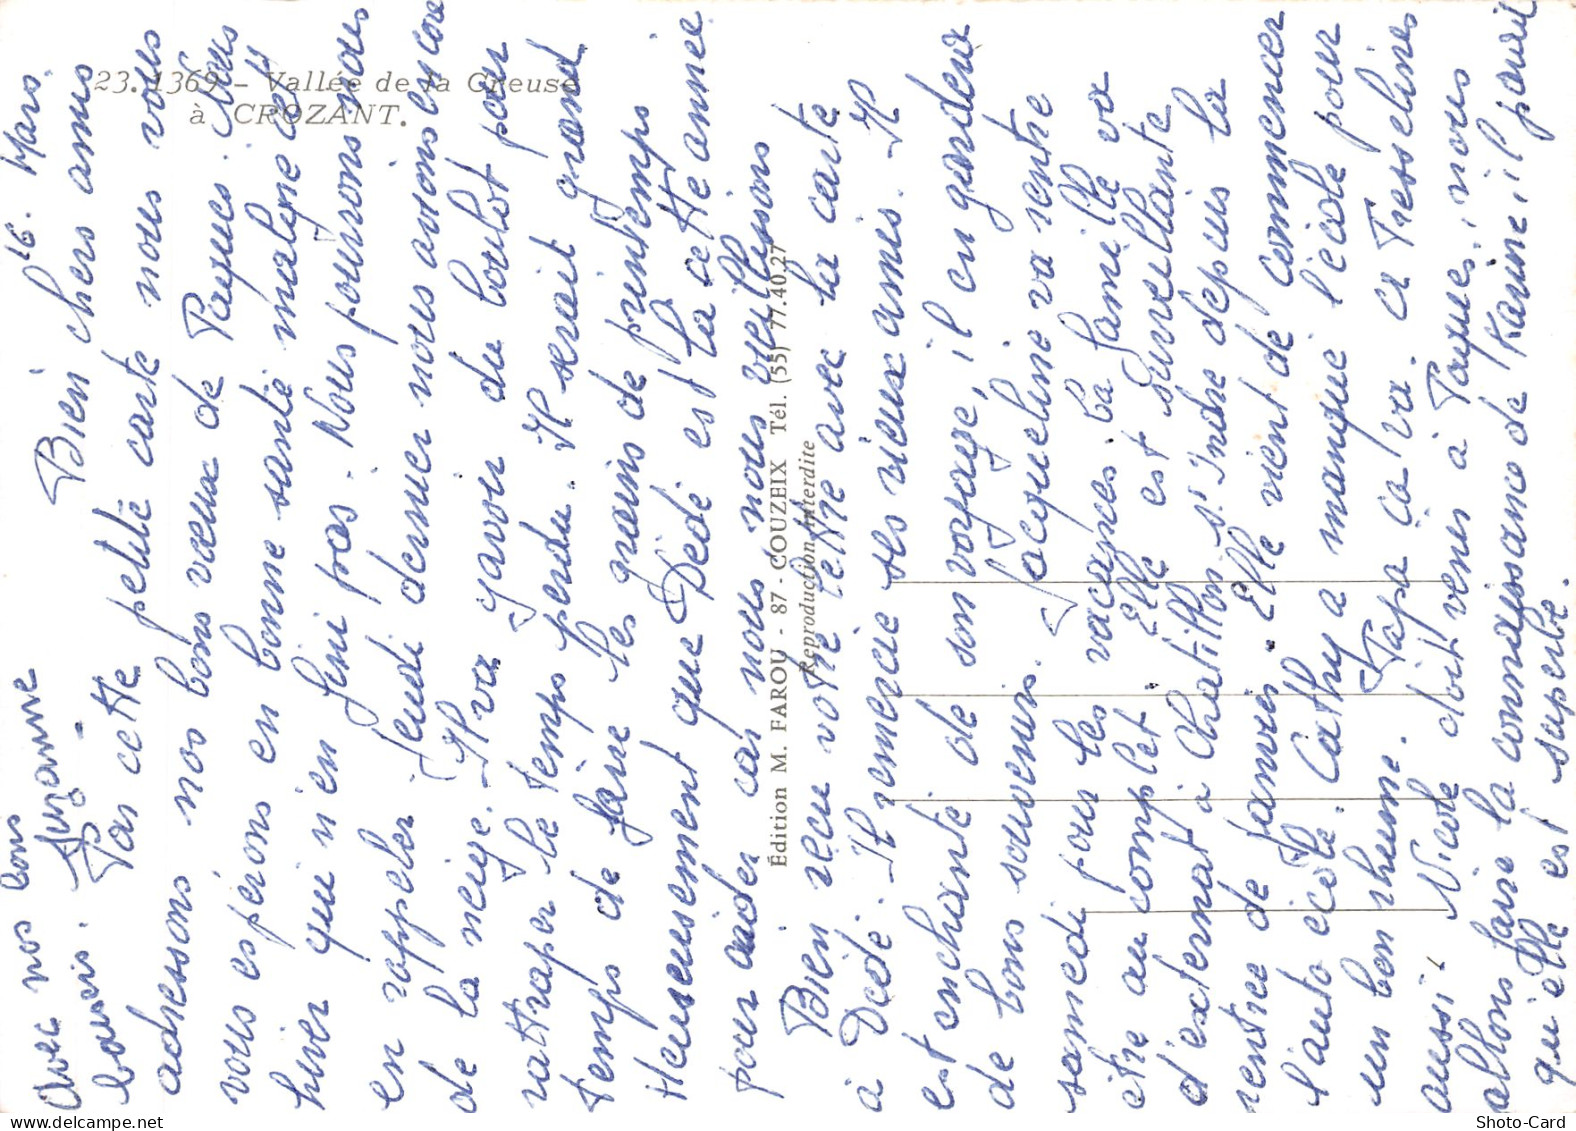 23.1369 - Vallée de la Creuse
à CROZANT.
Édition M. FAROU - 87 - COUZEIX Tél. (55) 77.40.27
Reproduction interdite
16. Mars.
Bien chers amis
Par cette petite carte nous vous
adressons nos bons vœux de Paques. Nous
vous espérons en bonne santé malgré cet
hiver qui n'en fini pas. Nous pourrons nous
en rappeler. Jeudi dernier nous avions encore
de la neige. Il va y avoir du boulot pour
rattraper le temps perdu. Il serait grand
temps de faire les grains de printemps.
Heureusement que Dédé est là cette année
pour aider car nous nous vieillissons
Bien reçu votre lettre avec la carte
à Dédé. Il remercie ses vieux amis. Il
est enchanté de son voyage, il en gardera
de bons souvenirs. Jacqueline va rentré
samedi pour les vacances. La famille va
être au complet. Elle est surveillante
d'externat à Chatillon s/ Indre depuis la
rentrée de janvier. Elle vient de commencer
l'auto école. Cathy a manqué l'école pour
un bon rhume. Papa ça va. ca Tresselines
aussi. Nicole doit venir à Paques, nous
allons faire la connaissance de Karine, il parait
qu'elle est superbe.
Avec nos bons
baisers. Suzanne